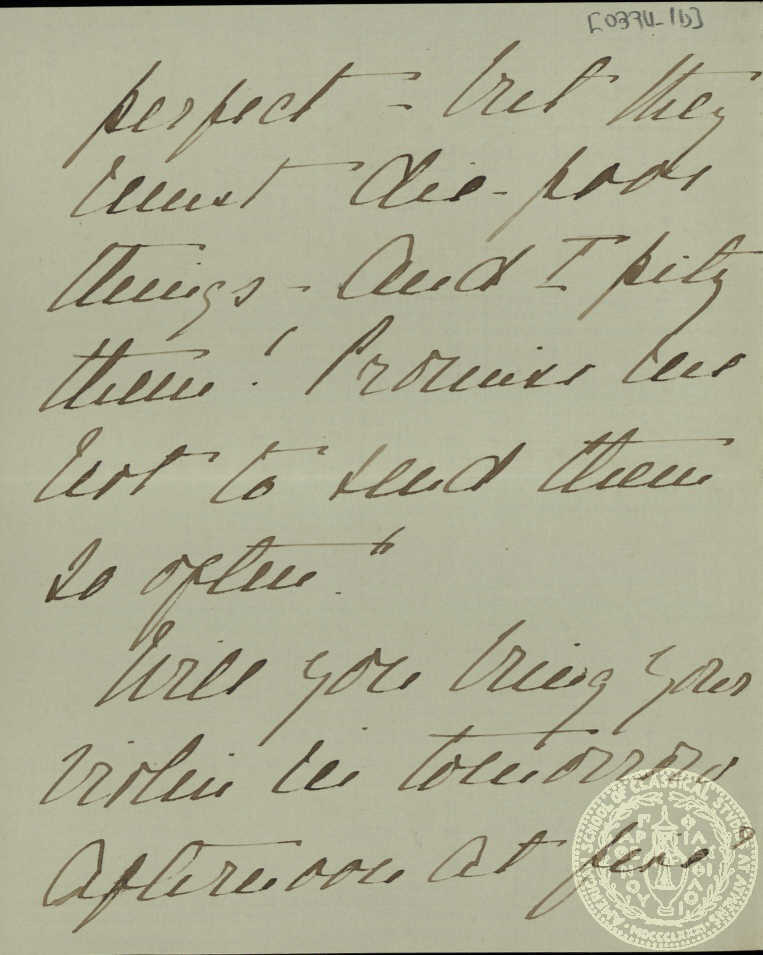 [0334-1b]
perfect - but they
must die - poor
things - And I pity
them! Promise me
not to send them
so often!
Will you bring your
violin in tomorrow
afternoon at five?
AMERICAN SCHOOL OF CLASSICAL STUDIES AT ATHENS
MDCCCLXXXI